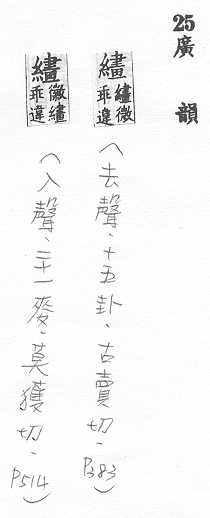 25廣韻
繣 繣徵乖違
（去聲、十五卦、古賣切、P383）
繣 徽繣乖違
（入聲、二十一麥、莫獲切、P514）